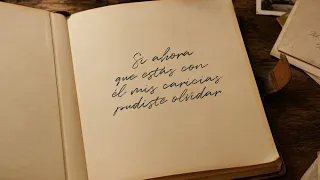 Si ahora
que estás con
él mis caricias
pudiste olvidar